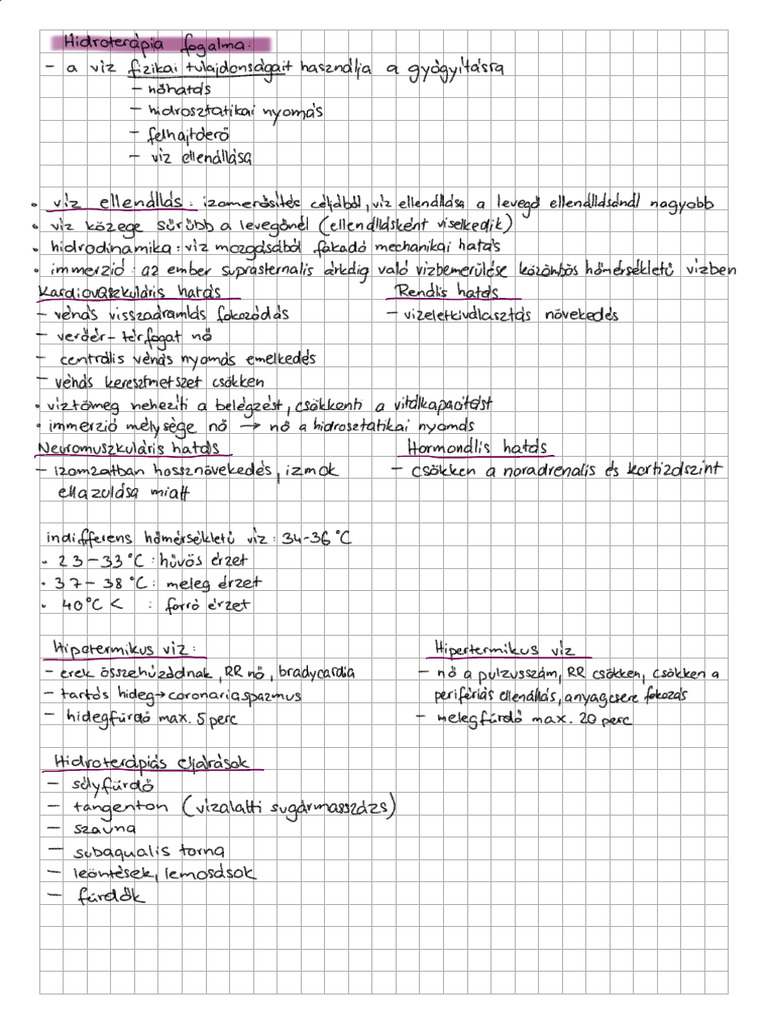 Hidroterápia fogalma:
– a víz fizikai tulajdonságait használja a gyógyításra
– hőhatás
– hidrosztatikai nyomás
– felhajtóerő
– víz ellenállása
• víz ellenállás: izomerősítés céljából, víz ellenállása a levegő ellenállásánál nagyobb
• víz közege sűrűbb a levegőnél (ellenállásként viselkedik)
• hidrodinamika: víz mozgásából fakadó mechanikai hatás
• immerzió: az ember suprasternalis árkáig való vízbemerülése közömbös hőmérsékletű vízben
Kardiovaszkuláris hatás
– vénás visszaáramlás fokozódás
– verőér-térfogat nő
– centrális vénás nyomás emelkedés
– vénás keresztmetszet csökken
Renális hatás
– vizeletkiválasztás növekedés
• víztömeg nehezíti a belégzést, csökkenti a vitálkapacitást
• immerzió mélysége nő → nő a hidrosztatikai nyomás
Neuromuszkuláris hatás
– izomzatban hossznövekedés, izmok
ellazulása miatt
Hormonális hatás
– csökken a noradrenalis és kortizolszint
indifferens hőmérsékletű víz: 34-36°C
• 23–33°C: hűvös érzet
• 37–38°C: meleg érzet
• 40°C < : forró érzet
Hipotermikus víz:
– erek összehúzódnak, RR nő, bradycardia
– tartós hideg → coronariaspazmus
– hidegfürdő max. 5 perc
Hipertermikus víz
– nő a pulzusszám, RR csökken, csökken a
perifériás ellenállás, anyagcsere fokozás
– melegfürdő max. 20 perc
Hidroterápiás eljárások
– sólyfürdő
– tangenton (vízalatti sugármasszázs)
– szauna
– subaqualis torna
– leöntések, lemosások
– fürdők